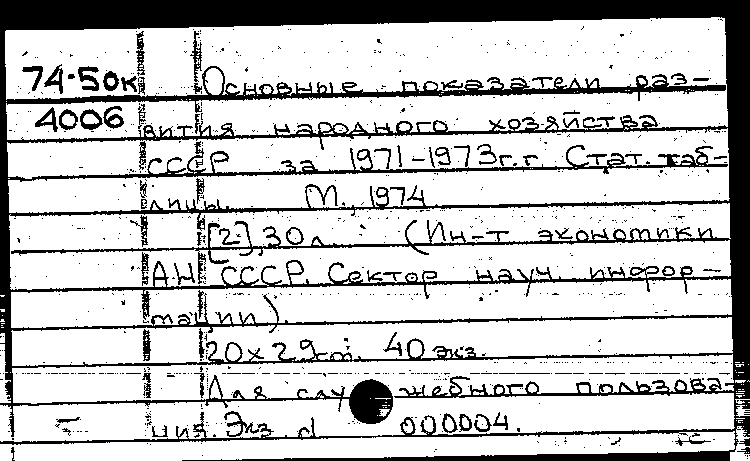 74-50к Основные показатели раз-
4006 вития народного хозяйства
СССР за 1971-1973г.г Стат. таб-
лицы. М., 1974
[2], 30 л. (Ин-т экономики
АН СССР. Сектор науч. инфор-
мации).
20х29см. 40 экз.
Для служебного пользова-
ния. Экз. 000004.